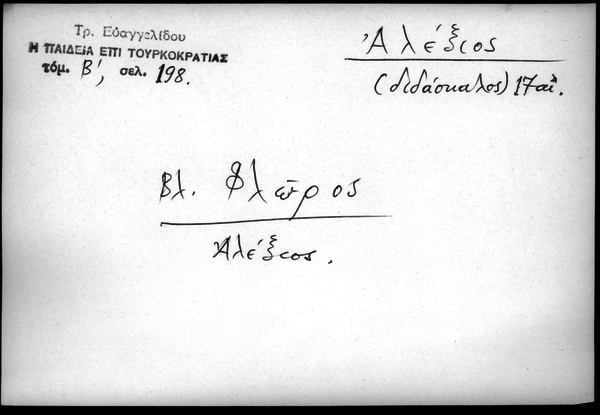 Τρ. Εὐαγγελίδου
Η ΠΑΙΔΕΙΑ ΕΠΙ ΤΟΥΡΚΟΚΡΑΤΙΑΣ
τόμ. Β', σελ. 198.
Ἀλέξιος
(διδάσκαλος) 17 αἰ.
Βλ. Φλῶρος
Ἀλέξιος.